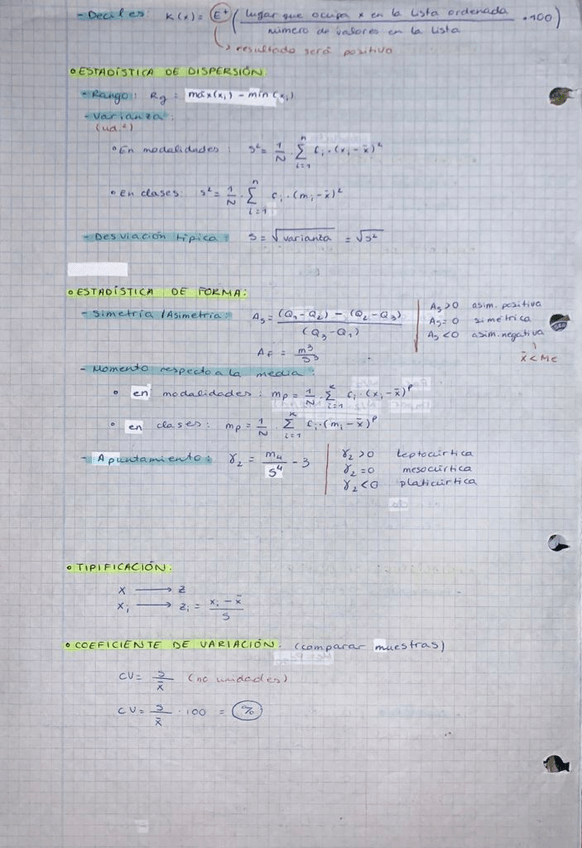 - Deciles: K(x) = E⁺ ( lugar que ocupa x en la lista ordenada / número de valores en la lista · 100 )
↳ resultado será positivo
• ESTADÍSTICA DE DISPERSIÓN
- Rango: Rg = máx(xi) - mín(xi)
- Varianza:
(ud.²)
• En modalidades: s² = 1/N · Σ_{i=1}^{n} fi · (xi - x̄)²
• En clases: s² = 1/N · Σ_{i=1}^{n} fi · (mi - x̄)²
- Desviación típica: S = √varianza = √s²
• ESTADÍSTICA DE FORMA:
- Simetría / Asimetría: As = (Q3 - Q2) - (Q2 - Q3) / (Q3 - Q1) | As > 0 asim. positiva
As = 0 simétrica
As < 0 asim. negativa
x̄ < Me
AF = m3 / s3
- Momento respecto a la media:
• en modalidades: mp = 1/N · Σ_{i=1}^{k} fi · (xi - x̄)^p
• en clases: mp = 1/N · Σ_{i=1}^{k} fi · (mi - x̄)^p
- Apuntamiento: γ2 = m4 / s⁴ - 3 | γ2 > 0 leptocúrtica
γ2 = 0 mesocúrtica
γ2 < 0 platicúrtica
• TIPIFICACIÓN:
x → z
xi → zi = xi - x̄ / s
• COEFICIENTE DE VARIACIÓN: (comparar muestras)
CV = s / x̄ (no unidades)
CV = s / x̄ · 100 = %